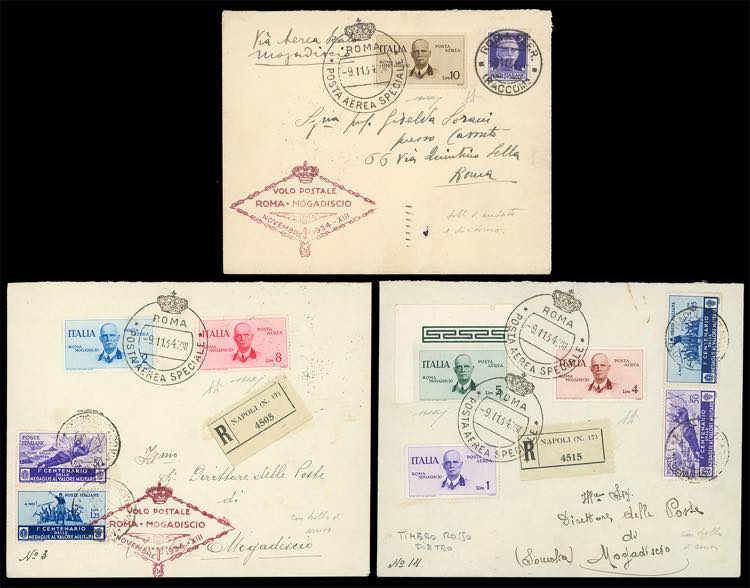 Via Aerea
Mogadiscio
ROMA
-9.11.34.XIII
POSTA AEREA SPECIALE
ITALIA POSTA AEREA
ROMA MOGADISCIO
Lire 10
(RACCOM
Giselda
presso
66 Via Quintino Sella
Roma
VOLO POSTALE
ROMA-MOGADISCIO
NOVEMBRE 1934-XIII
ITALIA
ROMA MOGADISCIO
2
ITALIA POSTA AEREA
ROMA MOGADISCIO
Lire 8
ROMA
-9.11.34.XIII
POSTA AEREA SPECIALE
R NAPOLI (N. 17)
4505
POSTE ITALIANE
1° CENTENARIO
DELLE
MEDAGLIE AL VALORE MILITARE
POSTE ITALIANE
1.25
1° CENTENARIO
DELLE
MEDAGLIE AL VALORE MILITARE
Il Direttore delle Poste
di
Mogadiscio
VOLO POSTALE
ROMA-MOGADISCIO
NOVEMBRE 1934-XIII
con bollo di
arrivo
N° 3
ROMA
-9.11.34.XIII
POSTA AEREA SPECIALE
ITALIA POSTA AEREA
ROMA MOGADISCIO
5
ITALIA POSTA AEREA
ROMA MOGADISCIO
Lire 4
-9.11.34.XIII
POSTA AEREA SPECIALE
ITALIA
ROMA MOGADISCIO
Lire 1
R NAPOLI (N. 17)
4515
1° CENTENARIO
DELLE
MEDAGLIE AL VALORE MILITARE
1° CENTENARIO
DELLE
MEDAGLIE AL VALORE MILITARE
Direttore delle Poste
di
Mogadiscio
con bollo
di arrivo
TIMBRO ROSSO
DIETRO
N° 14